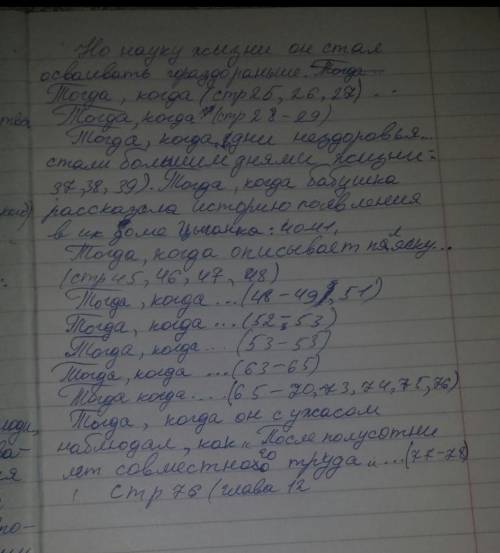 Но науку жизни он стал
осваивать гораздо раньше. Тогда
Тогда, когда (стр 25, 26, 27) ...
Тогда, когда (стр 28-29)
Тогда, когда, "дни нездоровья..
стали большими днями жизни:
37, 38, 39). Тогда, когда бабушка
рассказала историю появления
в их доме Цыганка: 40 41,
Тогда, когда описывает пляску..
(стр 45, 46, 47, 48)
Тогда, когда ... (48-49, 51)
Тогда, когда ... (52-53)
Тогда, когда ... (53-53)
Тогда, когда ... (63-65)
Тогда когда .... (65-70, 73, 74, 75, 76)
Тогда, когда он с ужасом
наблюдал, как „После полусотни
лет совместного труда„ ... (77-78)
! Стр 76 (глава 12
ства